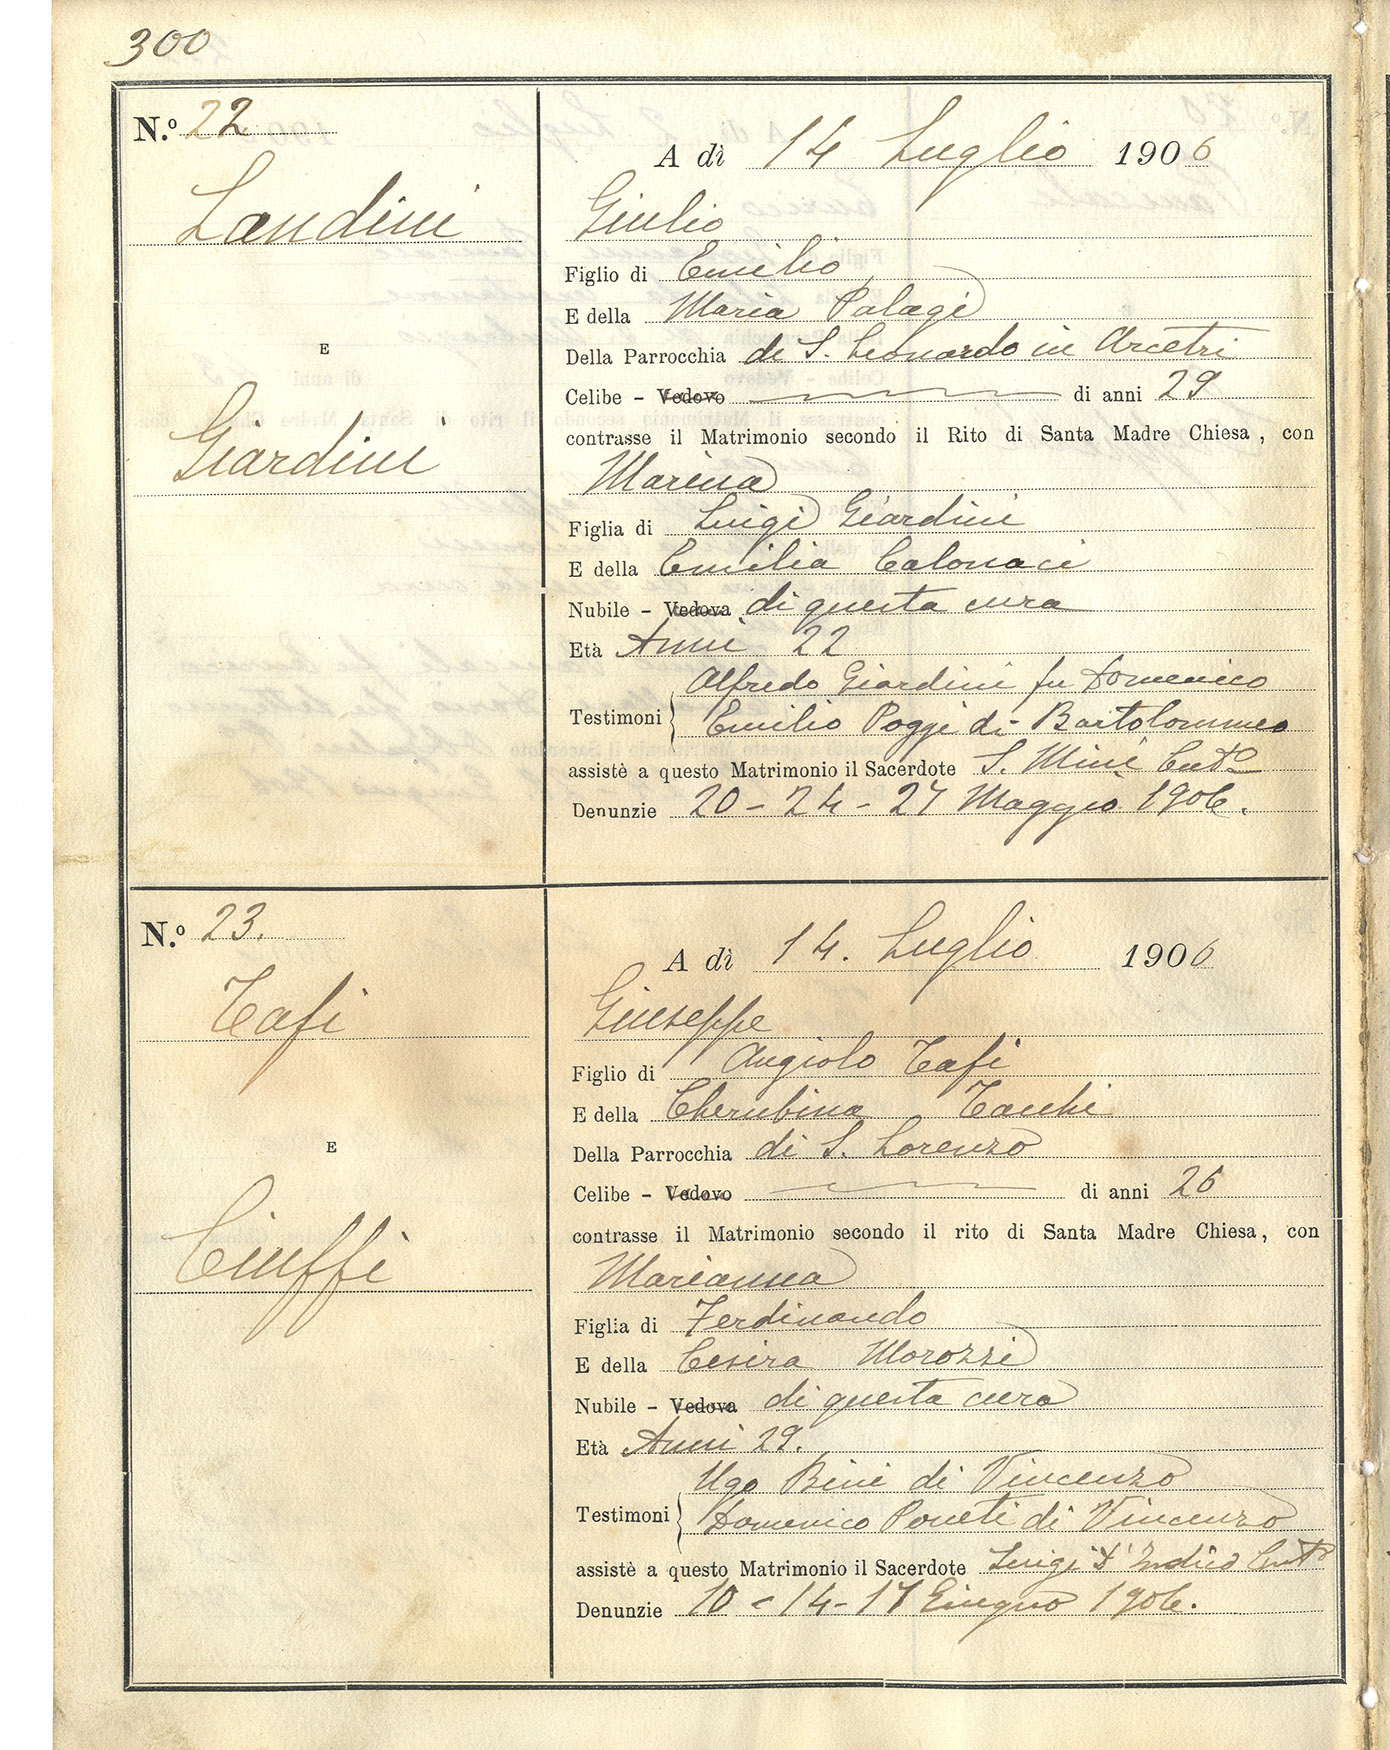 300
N.º 22
Landini
E
Giardini
A dì 14 Luglio 1906
Giulio
Figlio di Emilio
E della Maria Palagi
Della Parrocchia di S. Leonardo in Arcetri
Celibe – Vedovo di anni 29
contrasse il Matrimonio secondo il Rito di Santa Madre Chiesa, con
Marina
Figlia di Luigi Giardini
E della Emilia Calonaci
Nubile – Vedova di questa cura
Età Anni 22
Alfredo Giardini fu Domenico
Testimoni Emilio Poggi di Bartolommeo
assistè a questo Matrimonio il Sacerdote S. Mini
Denunzie 20 – 24 – 27 Maggio 1906.
N.º 23.
Tafi
E
Ciuffi
A dì 14. Luglio 1906
Giuseppe
Figlio di Angiolo Tafi
E della Cherubina Tacchi
Della Parrocchia di S. Lorenzo
Celibe – Vedovo di anni 26
contrasse il Matrimonio secondo il rito di Santa Madre Chiesa, con
Marianna
Figlia di Ferdinando
E della Cesira Morozzi
Nubile – Vedova di questa cura
Età Anni 29.
Ugo Bini di Vincenzo
Testimoni Domenico di Vincenzo
assistè a questo Matrimonio il Sacerdote Luigi D'Indico
Denunzie 10 – 14 – 17 Giugno 1906.